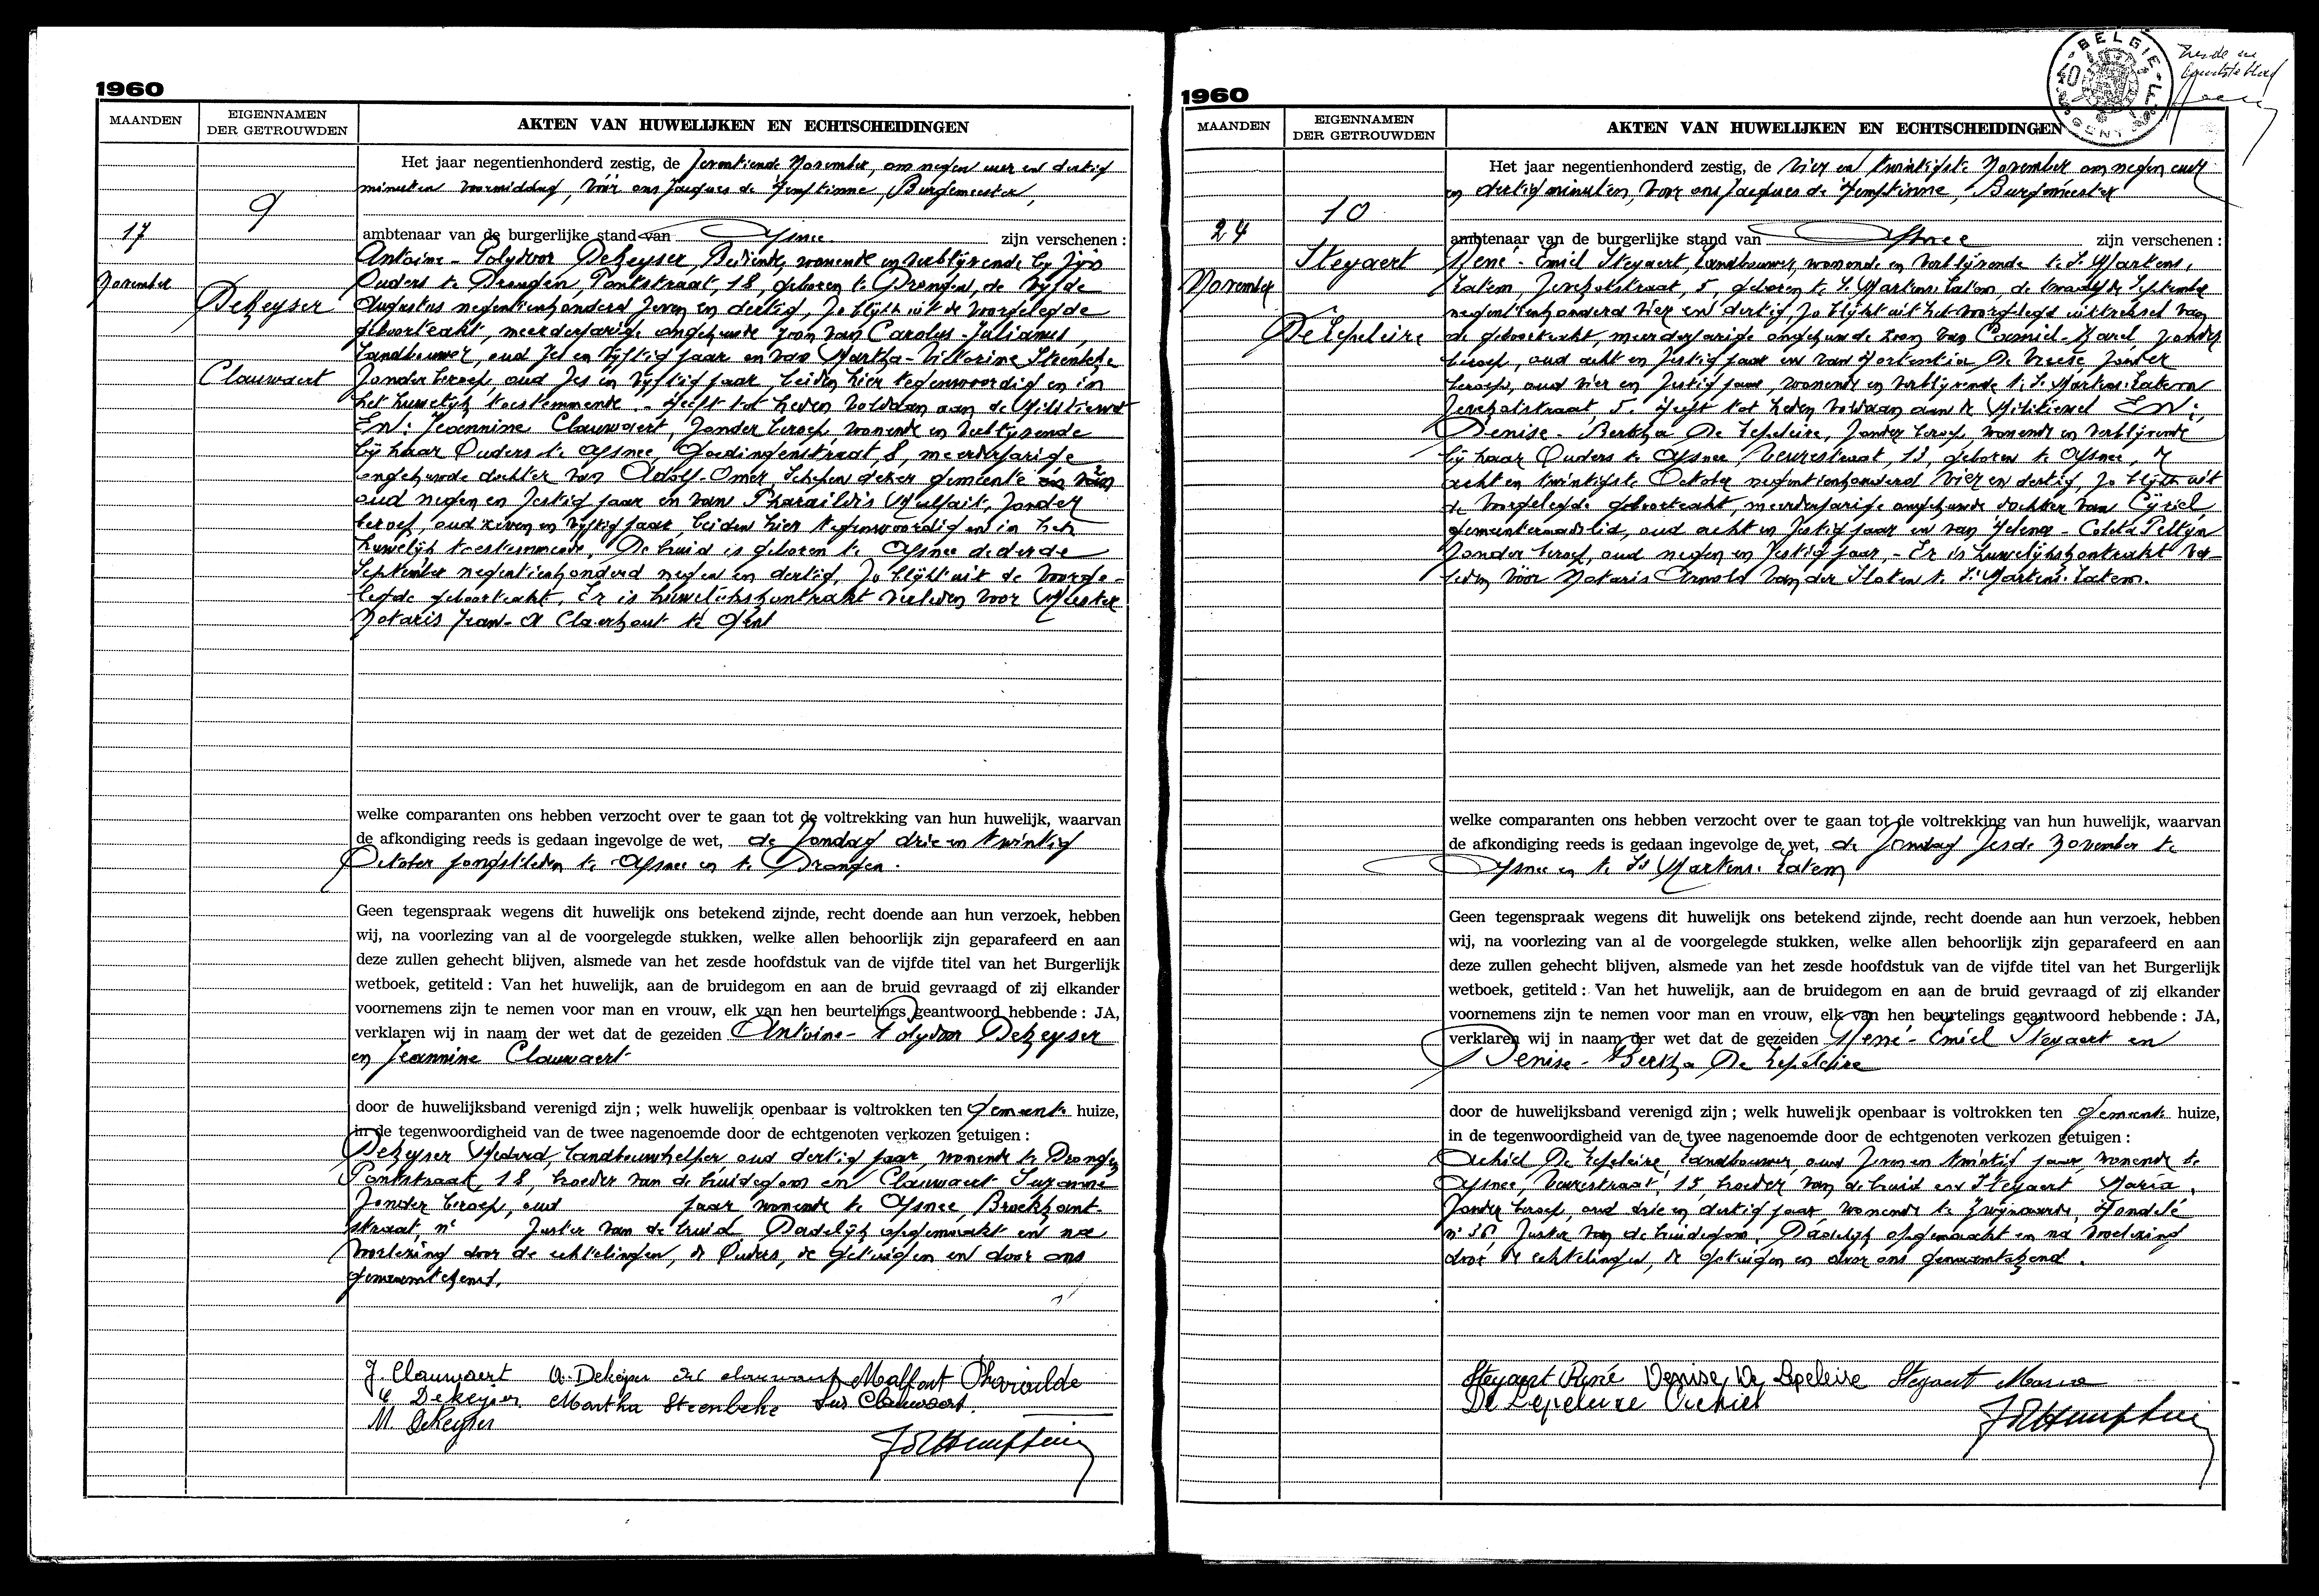 1960
MAANDEN
EIGENNAMEN
DER GETROUWDEN
AKTEN VAN HUWELIJKEN EN ECHTSCHEIDINGEN
9
17
November
DeKeyser
Clauwaert
Het jaar negentienhonderd zestig, de zeventiende November, om negen uur en dertig
minuten voormiddag, vóór ons Jacques de Hemptinne, Burgemeester,
ambtenaar van de burgerlijke stand van Afsnee zijn verschenen :
Antoine-Polydoor DeKeyser, Bediende, wonende en verblijvende bij zijn
Ouders te Drongen, Pontstraat, 18, geboren te Drongen, de vijfde
Augustus negentienhonderd zeven en dertig, zo blijkt uit de voorgelegde
geboorteakt, meerderjarige ongehuwde zoon van Carolus-Julianus,
Landbouwer, oud zes en vijftig jaar en van Martha-Victorine Steenbeke
Zonder beroep, oud zes en vijftig jaar, beiden hier tegenwoordig en in
het huwelijk toestemmende. - Heeft tot heden voldaan aan de Militiewet
En: Jeannine Clauwaert, zonder beroep, wonende en verblijvende
bij haar Ouders te Afsnee, Goedingenstraat, 8, meerderjarige
ongehuwde dochter van Adolf-Omer, Schepen dezer gemeente en van
oud negen en zestig jaar en van Pharaildis Malfait, zonder
beroep, oud zeven en vijftig jaar, beiden hier tegenwoordig en in het
huwelijk toestemmende. De bruid is geboren te Afsnee de derde
September negentienhonderd negen en dertig, zo blijkt uit de voorge-
legde geboorteakt. Er is huwelijkskontrakt verleden voor Meester
Notaris Jean- Claerhout te Gent
welke comparanten ons hebben verzocht over te gaan tot de voltrekking van hun huwelijk, waarvan
de afkondiging reeds is gedaan ingevolge de wet, de Zondag drie en twintig
October jongstleden te Afsnee en te Drongen.
Geen tegenspraak wegens dit huwelijk ons betekend zijnde, recht doende aan hun verzoek, hebben
wij, na voorlezing van al de voorgelegde stukken, welke allen behoorlijk zijn geparafeerd en aan
deze zullen gehecht blijven, alsmede van het zesde hoofdstuk van de vijfde titel van het Burgerlijk
wetboek, getiteld : Van het huwelijk, aan de bruidegom en aan de bruid gevraagd of zij elkander
voornemens zijn te nemen voor man en vrouw, elk van hen beurtelings geantwoord hebbende : JA,
verklaren wij in naam der wet dat de gezeiden Antoine-Polydoor DeKeyser
en Jeannine Clauwaert
door de huwelijksband verenigd zijn ; welk huwelijk openbaar is voltrokken ten Gemeente huize,
in de tegenwoordigheid van de twee nagenoemde door de echtgenoten verkozen getuigen :
DeKeyser Medard, Landbouwhelper oud dertig jaar, wonende te Drongen
Pontstraat, 18, broeder van de bruidegom en Clauwaert Suzanne
zonder beroep, oud jaar wonende te Afsnee, Broekkant-
straat, n° zuster van de bruid. Dadelijk opgemaakt en na
voorlezing door de echtelingen, de Ouders, de getuigen en door ons
genaamtekend.
J. Clauwaert A. Dekeyser Clauwaert Malfait Pharaïlde
C Dekeyser Martha Steenbeke Suz Clauwaert.
M. DeKeyser
1960
BELGIE
GENT
MAANDEN
EIGENNAMEN
DER GETROUWDEN
AKTEN VAN HUWELIJKEN EN ECHTSCHEIDINGEN
10
24
November
Steyaert
De Lepeleire
Het jaar negentienhonderd zestig, de vier en twintigste November om negen uur
en dertig minuten, voor ons Jacques de Hemptinne, Burgemeester
ambtenaar van de burgerlijke stand van Afsnee zijn verschenen :
René-Emiel Steyaert, Landbouwer, wonende en verblijvende te St Martens.
Latem, straat, 5, geboren te St Martens-Latem, de September
negentienhonderd vier en dertig, zo blijkt uit het voorgelegd uittreksel van
de geboorteakt, meerderjarige ongehuwde zoon van Camiel-Karel, zonder
beroep, oud acht en zestig jaar en van Hortentia De Vreese, zonder
beroep, oud vier en zestig jaar, wonende en verblijvende te St Martens-Latem
straat, 5. Heeft tot heden voldaan aan de Militiewet En:
Denise-Bertha De Lepeleire, zonder beroep, wonende en verblijvende
bij haar Ouders te Afsnee, Veurestraat, 13, geboren te Afsnee, de
acht en twintigste October negentienhonderd vier en dertig, zo blijkt uit
de voorgelegde geboorteakt, meerderjarige ongehuwde dochter van Cyriel,
gemeenteraadslid, oud acht en zestig jaar en van Helena-Coleta Pettyn
zonder beroep, oud negen en zestig jaar. - Er is huwelijkskontrakt ver-
leden vóór Notaris Arnold Van der Sloten te St Martens-Latem.
welke comparanten ons hebben verzocht over te gaan tot de voltrekking van hun huwelijk, waarvan
de afkondiging reeds is gedaan ingevolge de wet, de Zondag zesde November te
Afsnee en te St Martens-Latem
Geen tegenspraak wegens dit huwelijk ons betekend zijnde, recht doende aan hun verzoek, hebben
wij, na voorlezing van al de voorgelegde stukken, welke allen behoorlijk zijn geparafeerd en aan
deze zullen gehecht blijven, alsmede van het zesde hoofdstuk van de vijfde titel van het Burgerlijk
wetboek, getiteld : Van het huwelijk, aan de bruidegom en aan de bruid gevraagd of zij elkander
voornemens zijn te nemen voor man en vrouw, elk van hen beurtelings geantwoord hebbende : JA,
verklaren wij in naam der wet dat de gezeiden René-Emiel Steyaert en
Denise-Bertha De Lepeleire
door de huwelijksband verenigd zijn ; welk huwelijk openbaar is voltrokken ten Gemeente huize,
in de tegenwoordigheid van de twee nagenoemde door de echtgenoten verkozen getuigen :
Achiel De Lepeleire, Landbouwer, oud zeven en twintig jaar, wonende te
Afsnee, Veurestraat, 13, broeder van de bruid en Steyaert Maria,
zonder beroep, oud drie en dertig jaar, wonende te Zwijnaarde,
n° 36, zuster van de bruidegom. Dadelijk opgemaakt en na voorlezing
door de echtelingen, de getuigen en door ons genaamtekend.
Steyaert René Denise De Lepeleire Steyaert Maria
De Lepeleire Achiel